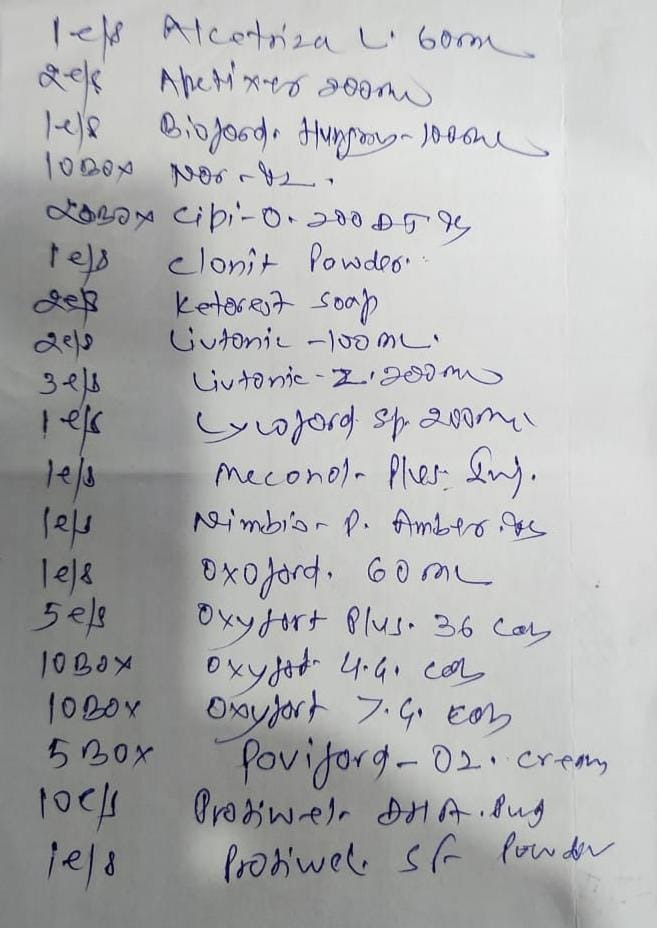 1 c/s Alcetriza L. 60ml
2 c/s Apetixer 200ml
1 c/s Bioford. Hungry - 100ml
10 Box Nor -
20 Box Cipi-O. 200 DT
1 c/s Clonit Powder.
2 c/s Ketorest Soap
2 c/s Livtonic - 100ml.
3 c/s Livtonic - Z. 200ml
1 c/s Lycoford Sp. 200ml
1 c/s Meconol - Plus Inj.
1 c/s Nimbio - P. Amber.
1 c/s Oxoford. 60ml
5 c/s Oxyfort Plus. 36 Cap
10 Box Oxyfort 4.G. Cap
10 Box Oxyfort 7.G. Cap
5 Box Poviford - 02. Cream
10 c/s Protiwel - DHA.
1 c/s Protiwel. SF Powder